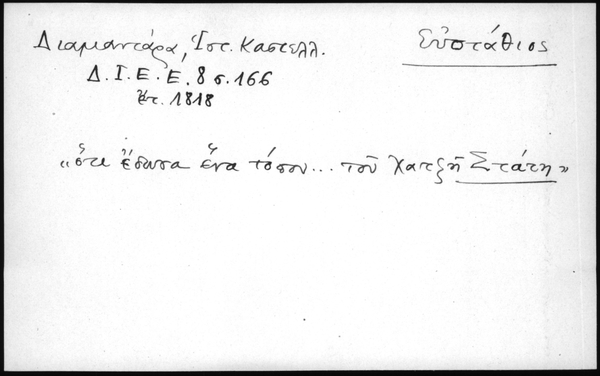 Διαμαντάρα, Ἱστ. Καστελλ.
Εὐστάθιος
Δ. Ι. Ε. Ε. 8 σ. 166
ἔτ. 1818
«ὅτι ἔδωσα ἕνα τόσον... τοῦ Χατζῆ Στάτη»